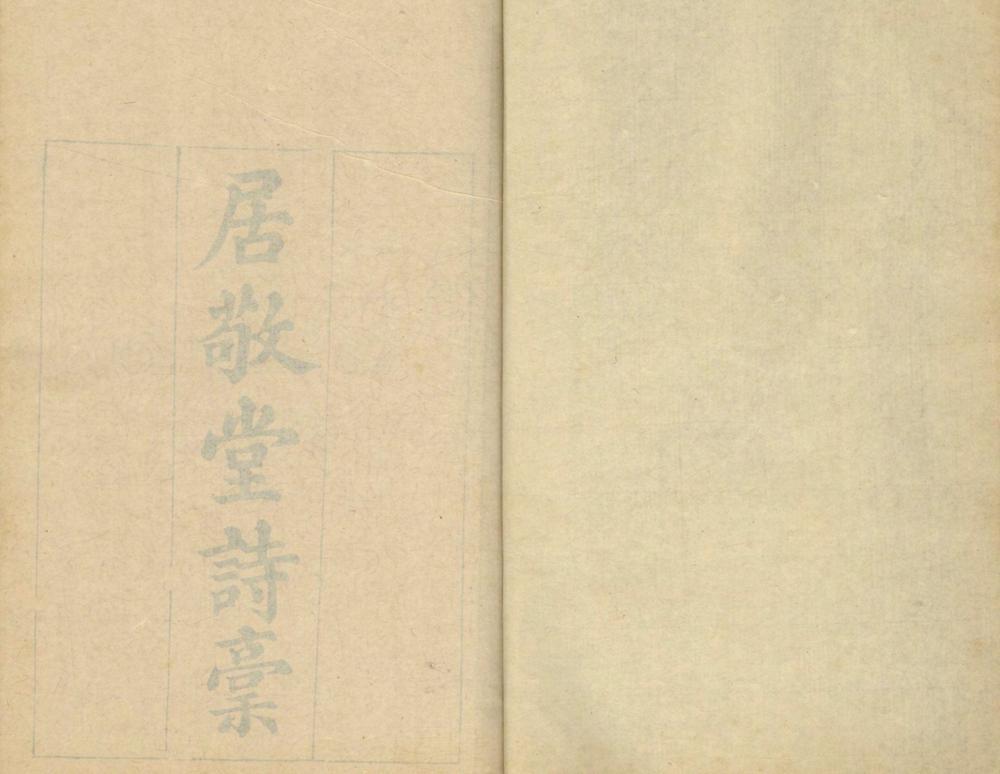 居敬堂詩稾